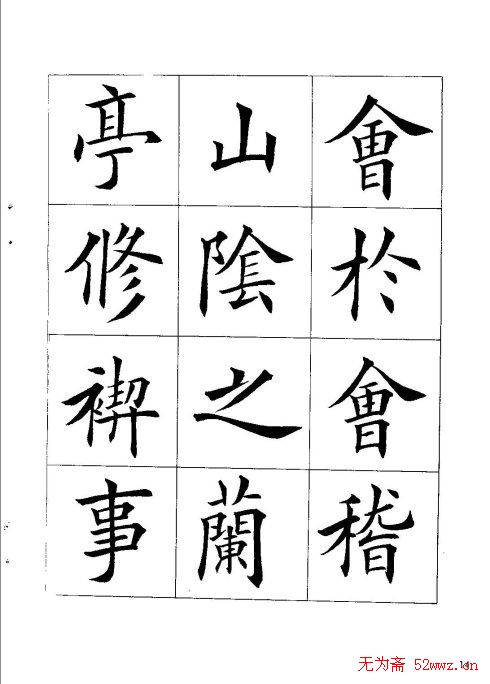 會於會稽
山陰之蘭
亭修禊事
无为斋 52wwz.cn